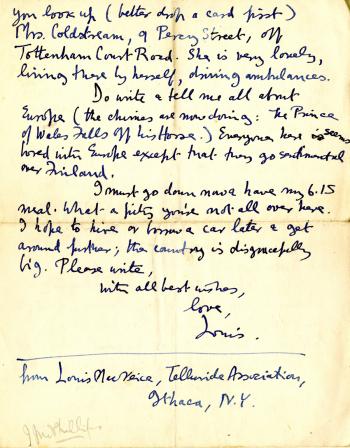 you look up (better drop a card first)
Mrs. Coldstream, 9 Percy Street, off
Tottenham Court Road. She is very lonely,
living there by herself, driving ambulances.
Do write & tell me all about
Europe (the chimes are now doing: The Prince
of Wales Falls off his Horse.) Everyone here seems
bored with Europe except that they go sentimental
over Finland.
I must go down now & have my 6.15
meal. What a pity you're not all over here.
I hope to hire or borrow a car later & get
around further; the country is disgracefully
big. Please write,
with all best wishes,
love,
Louis.
from Louis MacNeice, Telluride Association,
Ithaca, N.Y.